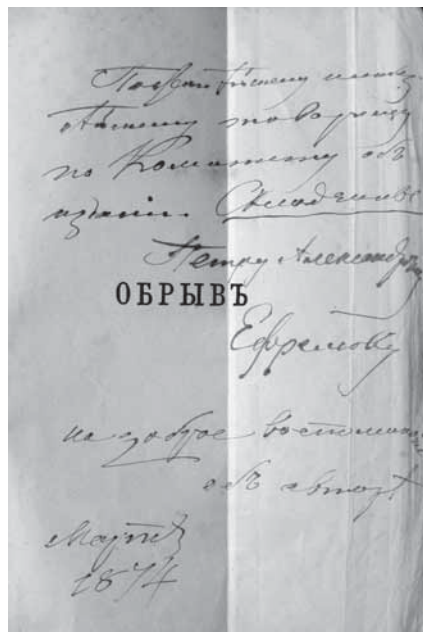 товарищу
по Комитету объ
изданіи Складчины
Петру Александровичу
ОБРЫВЪ
Ефремову
на доброе воспоминаніе
объ авторѣ
Мартъ
1874